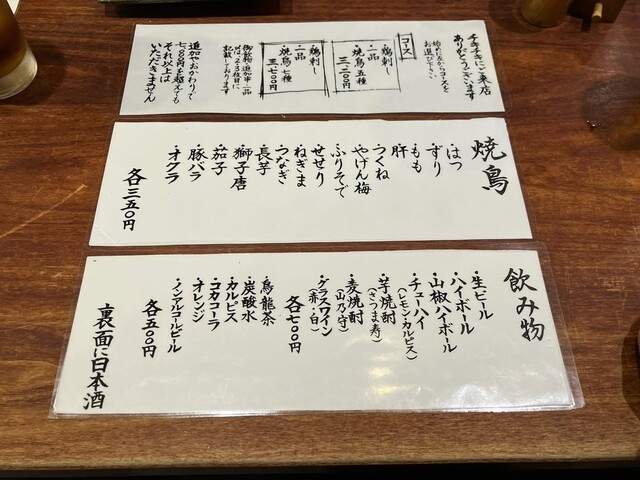 チキチキにご来店
ありがとうございます
始めに左からコースを
お選び下さい
コース
鶏刺し
一品
焼鳥 五種
三、二〇〇円
鶏刺し
二品
焼鳥 七種
三、七〇〇円
御飲物、追加串、一品
は、2、3枚目に
記載しております
追加やおかわりで
七、〇〇〇円を超えても
それ以上は
いただきません
焼鳥
・はつ
・ずり
・もも
・肝
・つくね
・やげん梅
・ふりそで
・せせり
・ねぎま
・つなぎ
・長芋
・獅子唐
・茄子
・豚バラ
・オクラ
各三五〇円
飲み物
・生ビール
・ハイボール
・山椒ハイボール
・チューハイ
(レモン・カルピス)
・芋焼酎
(さつま寿)
・麦焼酎
(山乃守)
・グラスワイン
(赤・白)
各七〇〇円
・烏龍茶
・炭酸水
・カルピス
・コカコーラ
・オレンジ
・ノンアルコールビール
各五〇〇円
裏面に日本酒